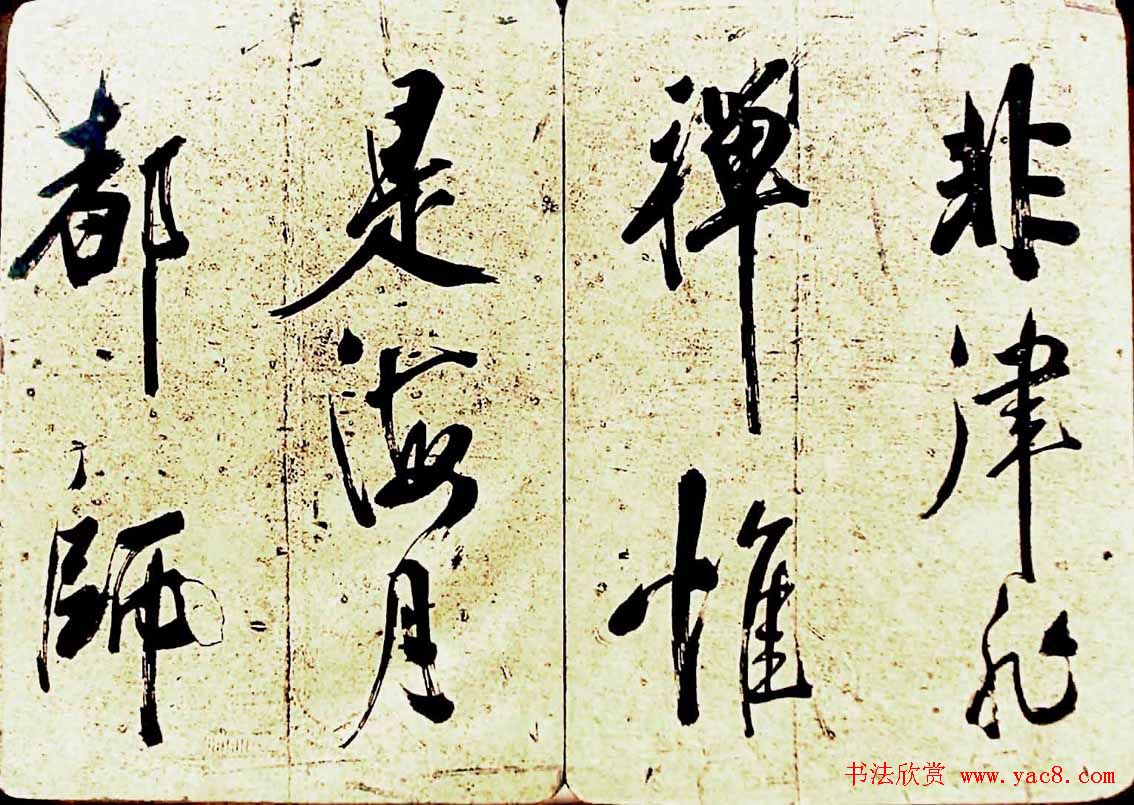 非津非
禅惟
是海月
都師
书法欣赏 www.yac8.com